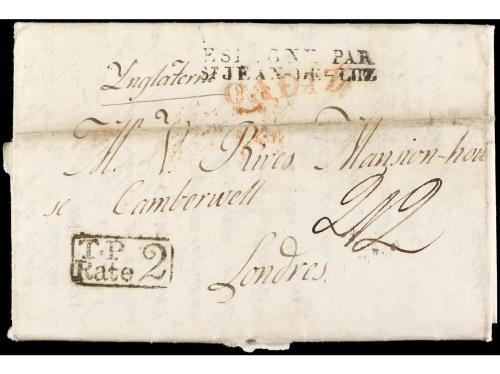 ESPAGNE PAR
ST JEAN-DE-LUZ
Ynglaterra
CADIZ
M. V. Rives Mansion-hou
se Camberwell
2/12
T.P
Rate 2
Londres.